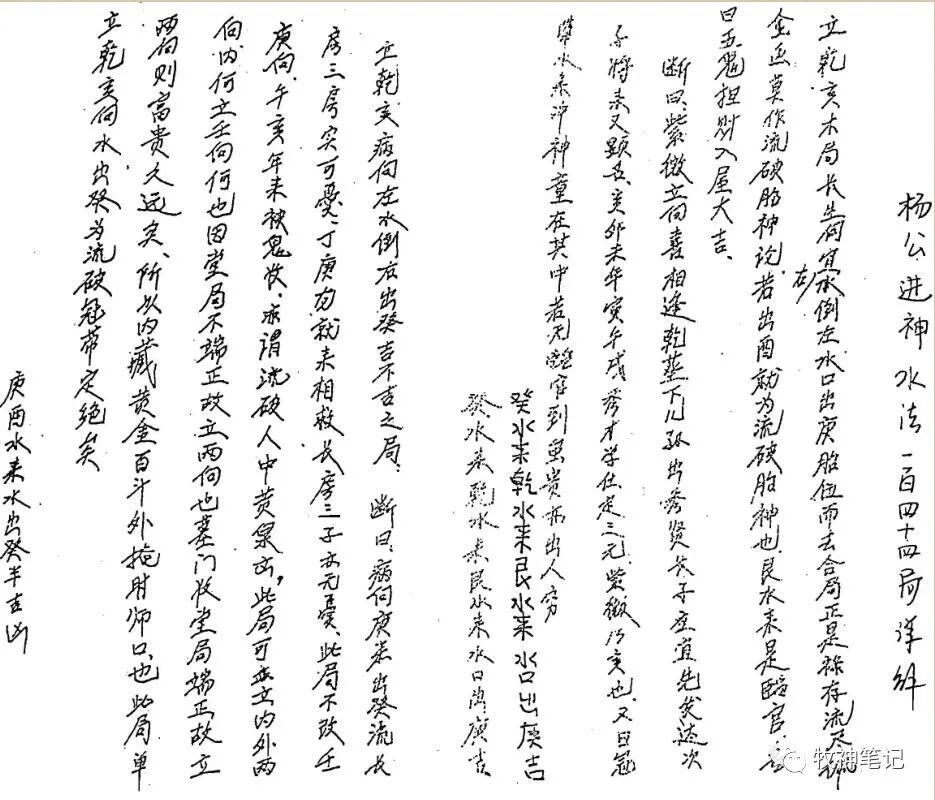 杨公进神水法一百四十四局详解
立乾亥木局长生向宜右水倒左水口出庚胎位而去合局正是禄存流尽佩
金鱼莫作流破胎神论若出酉就为流破胎神也艮水来是临官
曰五鬼担财入屋大吉、
断曰、紫微立向喜相逢乾燕下儿孙出秀贤长子应宜先发达次
子将来又显昌亥卯未年寅午戌秀才学仕定三元紫微乃亥也又曰冠
带水来冲神童在其中若无临官到虽贵亦出人穷
癸水来乾水来艮水来水口出庚吉
癸水来乾水来艮水来水口出庚吉
立乾亥病向左水倒右出癸吉不吉之局、断曰、病向庚来出癸流长
房三房实可忧、丁庚方就来相救长房三子亦无忧、此局不改壬
庚向、午亥年来被鬼收、求谓流破人中黄泉凶，此局可立内外两
向内何立壬向何也因堂局不端正故立两向也墓门收堂局端正故立
两向则富贵久远矣、所以内藏黄金百斗外掩射师口、也此局单
立乾亥向水出癸为流破冠带定绝矣
庚酉水来水出癸半吉凶
牧神笔记